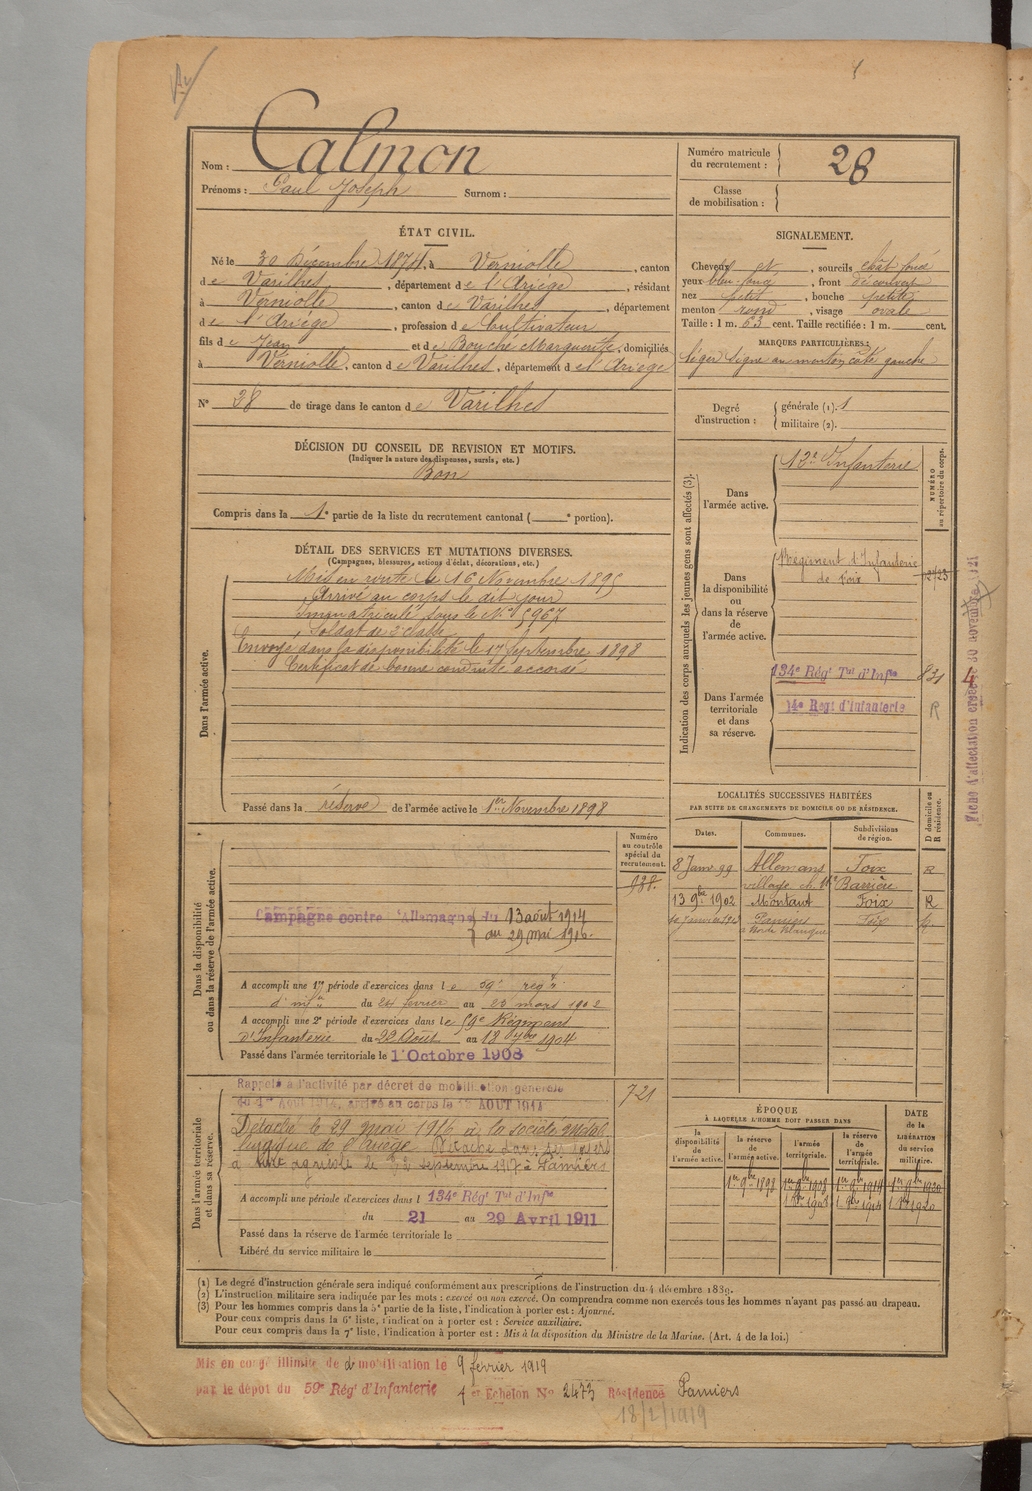 Nom : Calmon
Prénoms : Paul Joseph Surnom :
Numéro matricule du recrutement : 28
Classe de mobilisation :
ÉTAT CIVIL.
Né le 30 Décembre 1874, à Verniolle, canton
de Varilhes, département de l'Ariège, résidant
à Verniolle, canton de Varilhes, département
de l'Ariège, profession de Cultivateur
fils de Jean et de Bouché Marguerite, domiciliés
à Verniolle, canton de Varilhes, département de l'Ariège
N° 28 de tirage dans le canton de Varilhes
SIGNALEMENT.
Cheveux et, sourcils chât foncé
yeux bleu foncé, front découvert
nez petit, bouche petite
menton rond, visage ovale
Taille : 1 m. 63 cent. Taille rectifiée : 1 m. cent.
MARQUES PARTICULIÈRES :
léger signe au menton côté gauche
Degré d'instruction : générale (1). 1
militaire (2).
DÉCISION DU CONSEIL DE REVISION ET MOTIFS.
(Indiquer la nature des dispenses, sursis, etc.)
Bon
Compris dans la 1e partie de la liste du recrutement cantonal ( e portion).
DÉTAIL DES SERVICES ET MUTATIONS DIVERSES.
(Campagnes, blessures, actions d'éclat, décorations, etc.)
Dans l'armée active.
Mis en route le 16 Novembre 1895
Arrivé au corps le dit jour
Immatriculé sous le N° 5967
Soldat de 2e classe
Envoyé dans la disponibilité le 17 Septembre 1898
Certificat de bonne conduite accordé
Passé dans la réserve de l'armée active le 1er Novembre 1898
Indication des corps auxquels les jeunes gens sont affectés (3).
NUMÉRO au répertoire du corps.
Dans l'armée active.
12e Infanterie
Dans la disponibilité ou dans la réserve de l'armée active.
Régiment d'Infanterie
de Foix
Dans l'armée territoriale et dans sa réserve.
134e Régt Tal d'Infie 831
14e Regt d'infanterie R
Fiche d'affectation 30 novembre 1921
LOCALITÉS SUCCESSIVES HABITÉES
PAR SUITE DE CHANGEMENTS DE DOMICILE OU DE RÉSIDENCE.
Dates. Communes. Subdivisions de région. D domicile ou R résidence.
8 Janv 99 Allemans Foix R
village ch. Barrière
13 9bre 1902 Montaut Foix R
Pamiers Foix
Dans la disponibilité ou dans la réserve de l'armée active.
Numéro au contrôle spécial du recrutement.
938.
Campagne contre l'Allemagne du 13 août 1914
au 29 mai 1916.
A accompli une 1re période d'exercices dans le 59e régt
d'infie du 24 février au 23 mars 1902
A accompli une 2e période d'exercices dans le 59e Régiment
d'Infanterie du 22 Août au 18 7bre 1904
Passé dans l'armée territoriale le 1er Octobre 1908
Dans l'armée territoriale et dans sa réserve.
721
Rappelé à l'activité par décret de mobilisation générale
du 1er Août 1914, arrivé au corps le AOUT 1914
Détaché le 29 mai 1916 à la société métal-
lurgique de l'Ariège
agricole le 22 septembre 1917 à Pamiers
A accompli une période d'exercices dans l 134e Régt Tal d'Infie
du 21 au 29 Avril 1911
Passé dans la réserve de l'armée territoriale le
Libéré du service militaire le
ÉPOQUE
À LAQUELLE L'HOMME DOIT PASSER DANS
DATE DE LA LIBÉRATION du service militaire.
la disponibilité de l'armée active. la réserve de l'armée active. l'armée territoriale. la réserve de l'armée territoriale.
1er 9bre 1898 1er 9bre 1908 1er 9bre 1914 1er 9bre 1920
(1) Le degré d'instruction générale sera indiqué conformément aux prescriptions de l'instruction du 4 décembre 1889.
(2) L'instruction militaire sera indiquée par les mots : exercé ou non exercé. On comprendra comme non exercés tous les hommes n'ayant pas passé au drapeau.
(3) Pour les hommes compris dans la 5e partie de la liste, l'indication à porter est : Ajourné.
Pour ceux compris dans la 6e liste, l'indication à porter est : Service auxiliaire.
Pour ceux compris dans la 7e liste, l'indication à porter est : Mis à la disposition du Ministre de la Marine. (Art. 4 de la loi.)
Mis en congé illimité de démobilisation le 9 février 1919
par le dépôt du 59e Régt d'Infanterie 4er Echelon N° 2473 Résidence Pamiers
18/2/1919